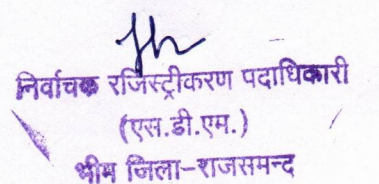 निर्वाचक रजिस्ट्रीकरण पदाधिकारी
(एस.डी.एम.)
भीम जिला-राजसमन्द